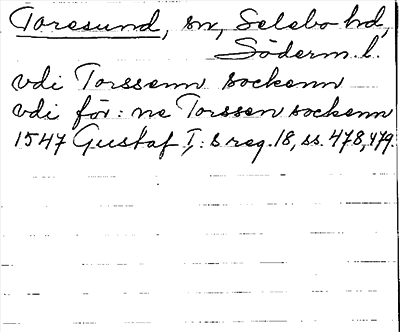 Toresund, sn, Selebo hd,
Söderm. l.
vdi Torssenn sockenn
vdi för: ne Torssen sockenn
1547 Gustaf I: s reg. 18, ss. 478, 479.